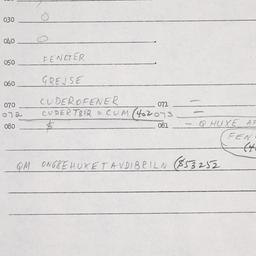 030 0
040 0
050 FENGTER
060 GREJSE
070 CUDEROFENER 071 —
072 CUDERTBIR = CUM (402 073 =
080 $ 081 - QHUXE AF
FEN
QM ONGBEHUXETAVDIBRILN ($53252